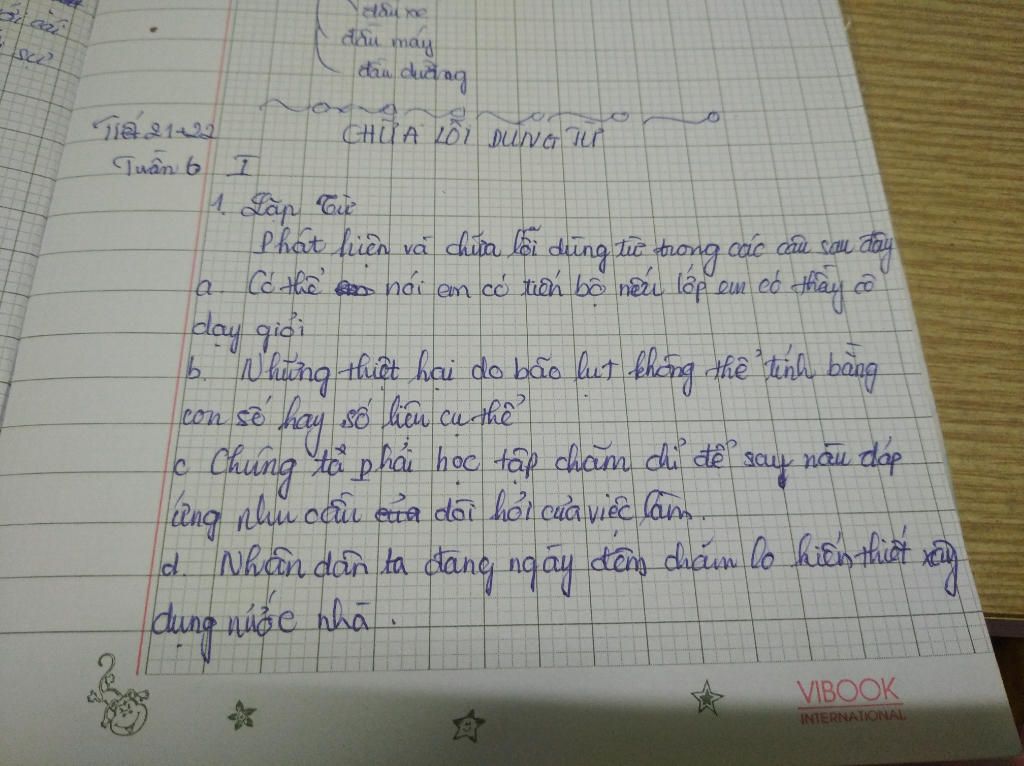 đầu xe
đầu máy
đầu đường
Tiết 21+22
CHỮA LỖI DÙNG TỪ
Tuần 6 I
1. Lặp từ
Phát hiện và chữa lỗi dùng từ trong các câu sau đây
a. Có thể nói em có tiến bộ nếu lớp em có thầy cô
dạy giỏi
b. Những thiệt hại do bão lụt không thể tính bằng
con số hay số liệu cụ thể
c Chúng ta phải học tập chăm chỉ để say nầu đáp
ứng nhu cầu của đòi hỏi của việc làm.
d. Nhân dân ta đang ngày đêm chăm lo kiến thiết xây
dựng nước nhà.
VIBOOK
INTERNATIONAL